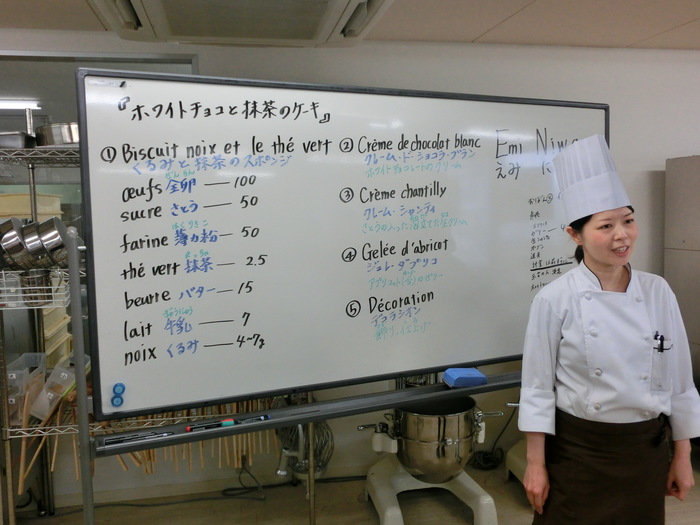 『ホワイトチョコと抹茶のケーキ』
① Biscuit noix et le thé vert
くるみと抹茶のスポンジ
œufs 全卵 ぜんらん — 100
sucre さとう — 50
farine 薄力粉 はくりきこ — 50
thé vert 抹茶 — 2.5
beurre バター — 15
lait 牛乳 ぎゅうにゅう — 7
noix くるみ — 4~7g
② Crème de chocolat blanc
クレーム・ド・ショコラ・ブラン
ホワイトチョコレートのクリーム
③ Crème chantilly
クレーム・シャンティ
さとうの入った泡立てた生クリーム
④ Gelée d'abricot
ジュレ・ダブリコ
アプリコット(杏)のゼリー
⑤ Décoration
デコラシオン
飾り、仕上げ
Emi Niwa
えみ に